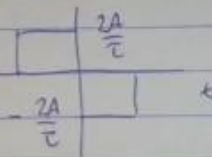 2A/τ
t
- 2A/τ